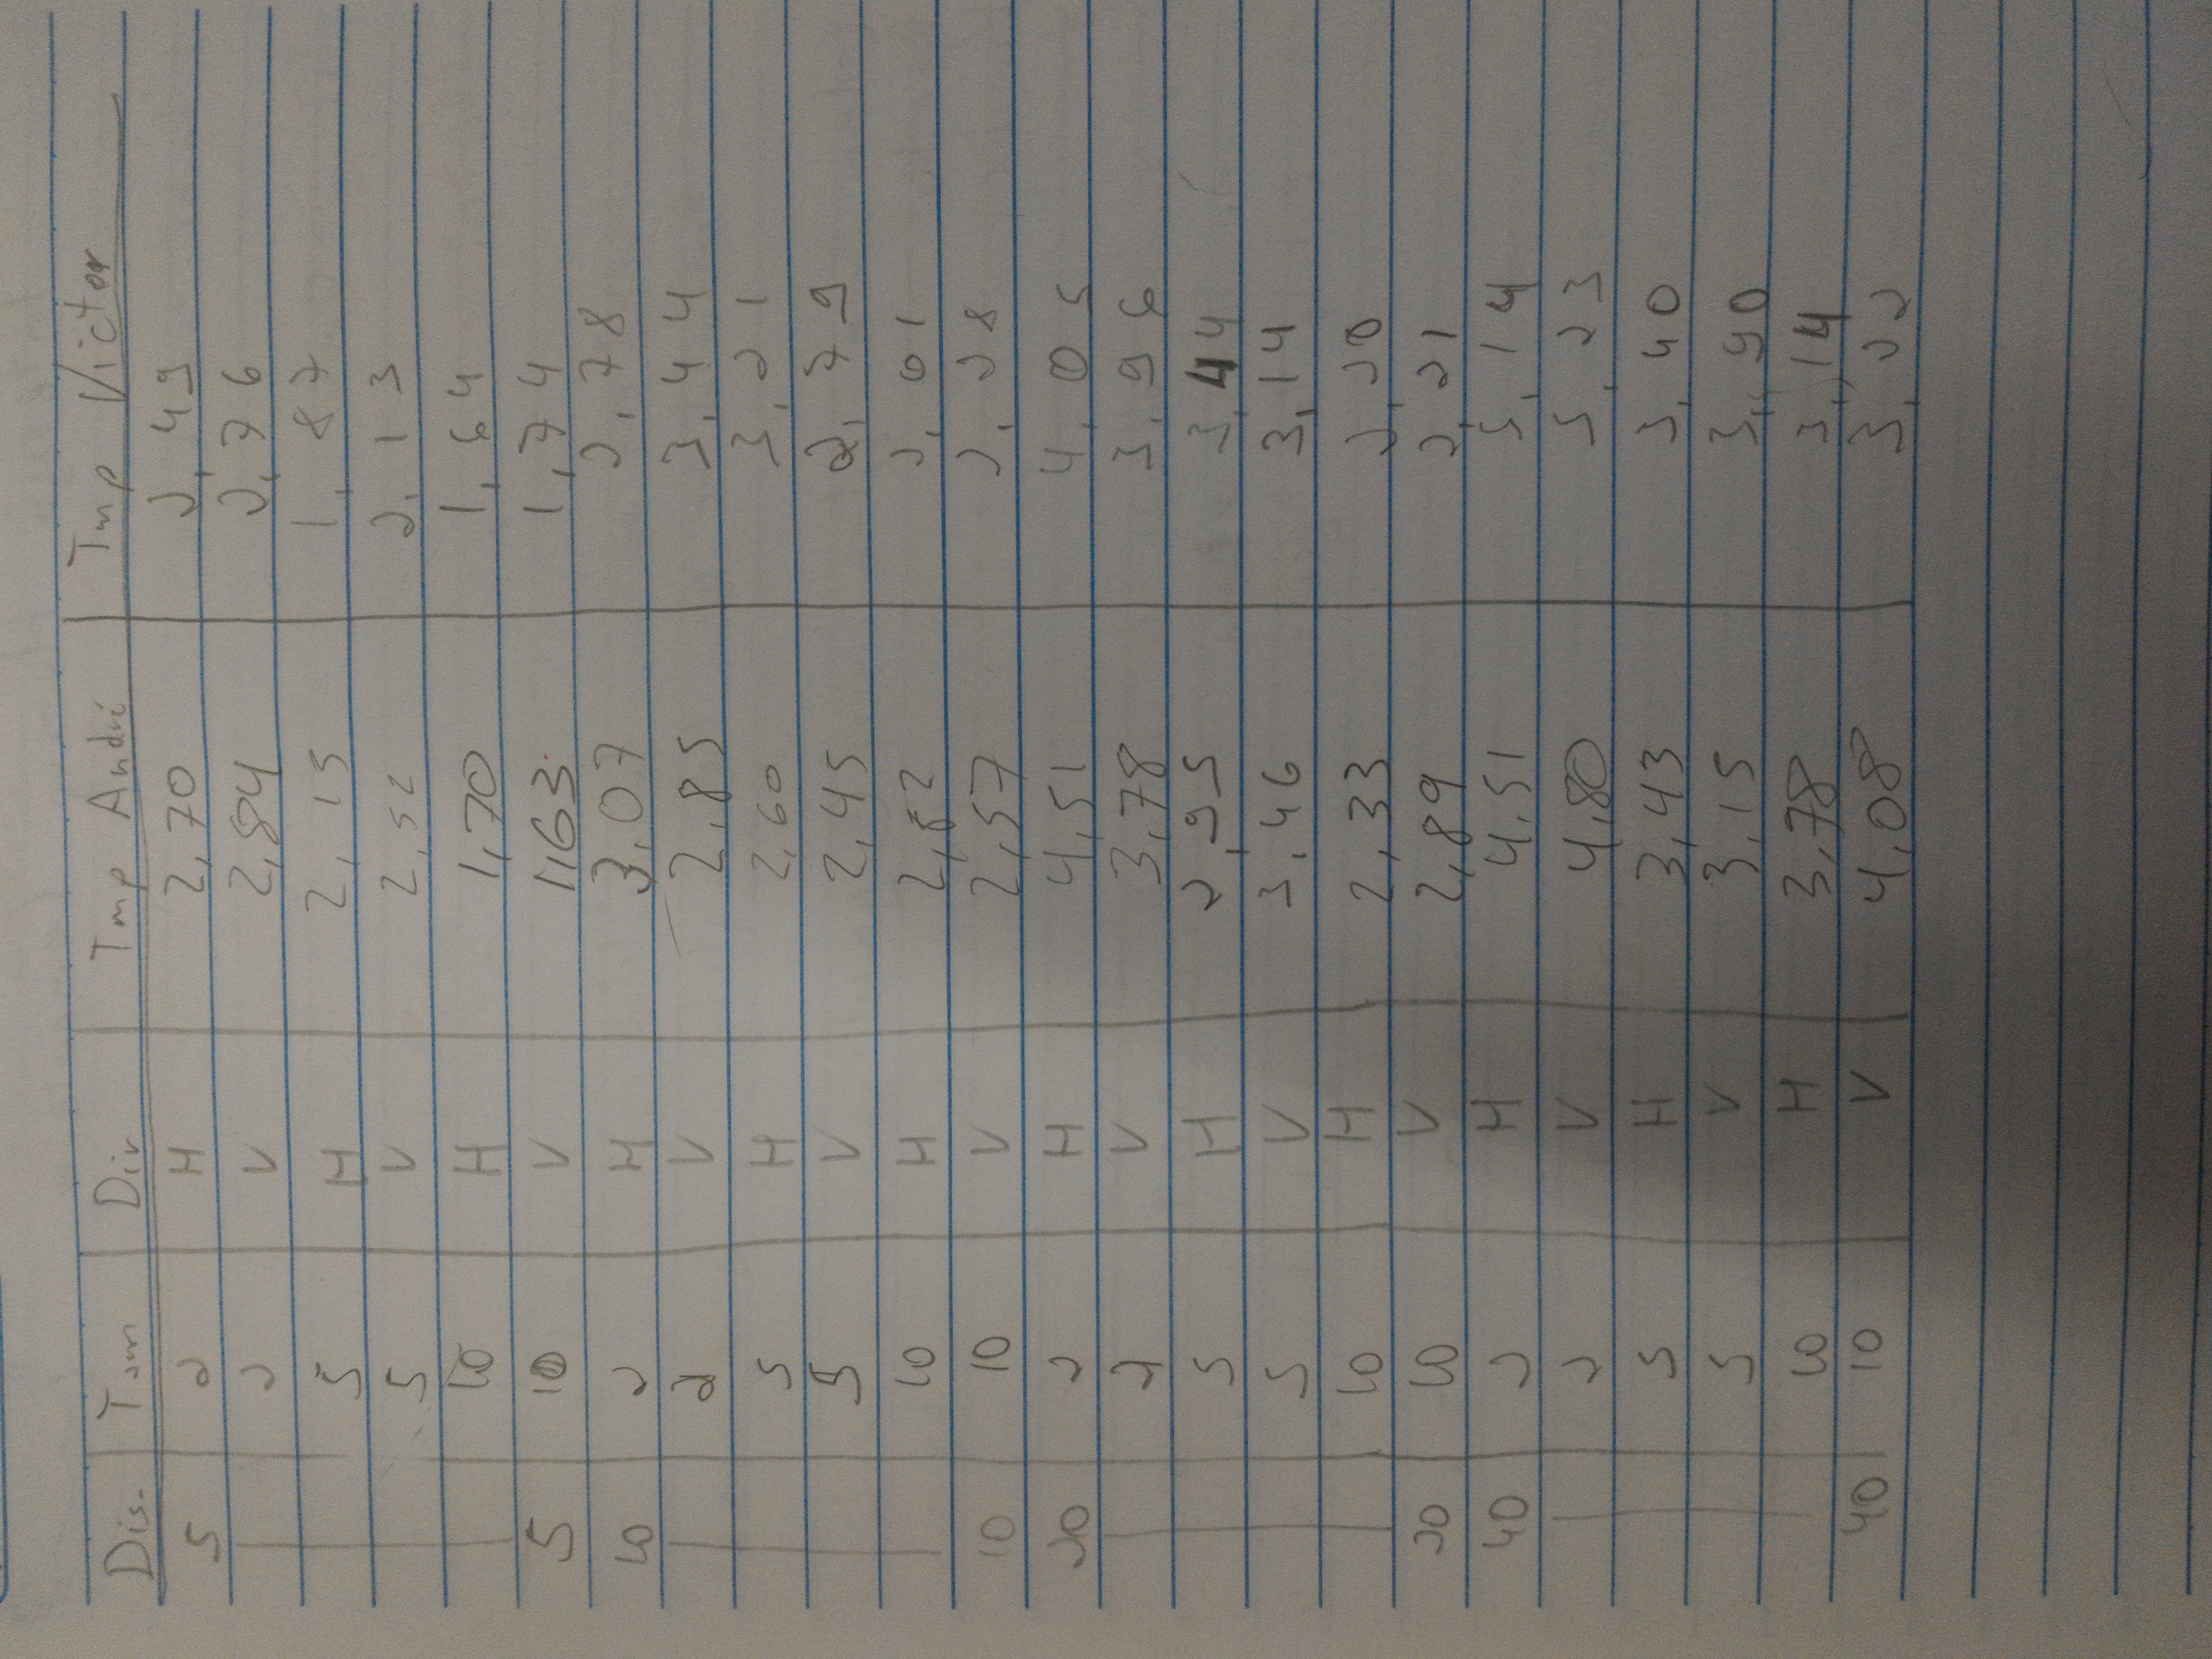 Dis. Tam Dir Tmp André Tmp Victor
5 2 H 2,70 2,49
2 V 2,84 2,76
5 H 2,15 1,87
5 V 2,52 2,13
10 H 1,70 1,64
5 10 V 1,63 1,74
10 2 H 3,07 2,78
2 V 2,85 3,44
5 H 2,60 3,21
5 V 2,45 2,79
10 H 2,82 2,01
10 10 V 2,57 2,28
20 2 H 4,51 4,05
2 V 3,78 3,96
5 H 2,95 3,44
5 V 3,46 3,14
10 H 2,33 2,20
20 10 V 2,89 2,21
40 2 H 4,51 5,14
2 V 4,80 5,23
5 H 3,43 3,40
5 V 3,15 3,90
10 H 3,78 3,14
40 10 V 4,08 3,22